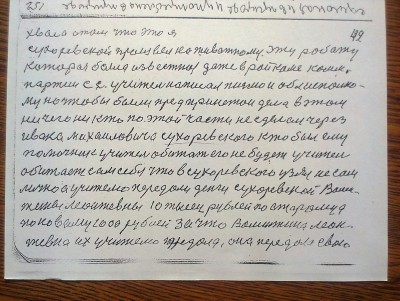 хвала этом что это я 49
сухоревской произвел по животному. эту работу
которая была известная даже в райкоме комм.
партии С.С. учител написал письмо обл исполко-
му но чтобы были предпринетои дела в этом
ничего никто по этой части не сделол через
ивана михаиловича сухоревского кто был ему
помочник учител обитат его не будет учител
обитает сам себя что в сухоревского узял не сам
лично а учителю передоли денги сухоревской Вали-
тены леонтевны 10 тысеч рублей по старому а
по новому 1000 рублей За что Валинтина леон-
тевна их учителю предола, она передола свою